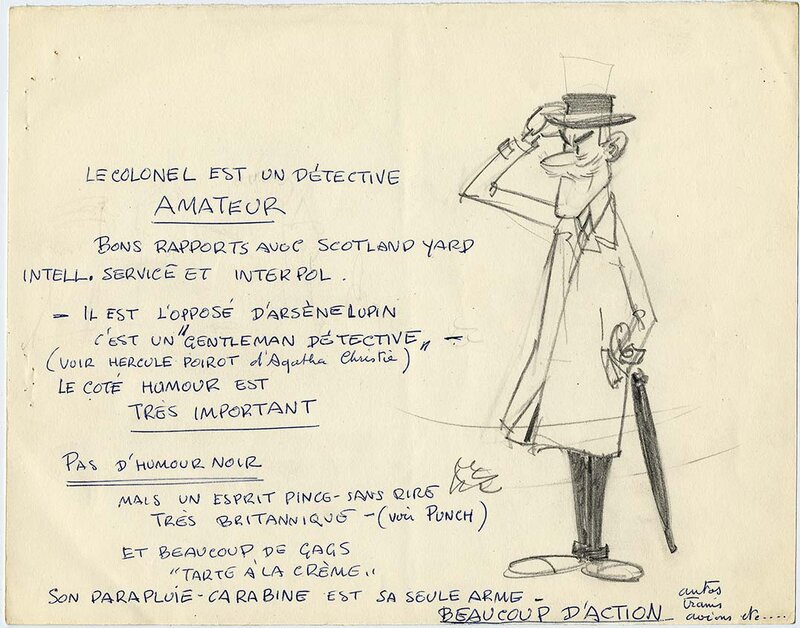 LE COLONEL EST UN DÉTECTIVE
AMATEUR
BONS RAPPORTS AVEC SCOTLAND YARD
INTELL. SERVICE ET INTERPOL.
- IL EST L'OPPOSÉ D'ARSÈNE LUPIN
C'EST UN "GENTLEMAN DÉTECTIVE" -
(VOIR HERCULE POIROT d'Agatha Christie)
LE COTÉ HUMOUR EST
TRÈS IMPORTANT
PAS D'HUMOUR NOIR
MAIS UN ESPRIT PINCE-SANS RIRE
TRÈS BRITANNIQUE - (voir PUNCH)
ET BEAUCOUP DE GAGS
"TARTE À LA CRÈME"
SON PARAPLUIE-CARABINE EST SA SEULE ARME -
BEAUCOUP D'ACTION
autos
trains
avions etc....